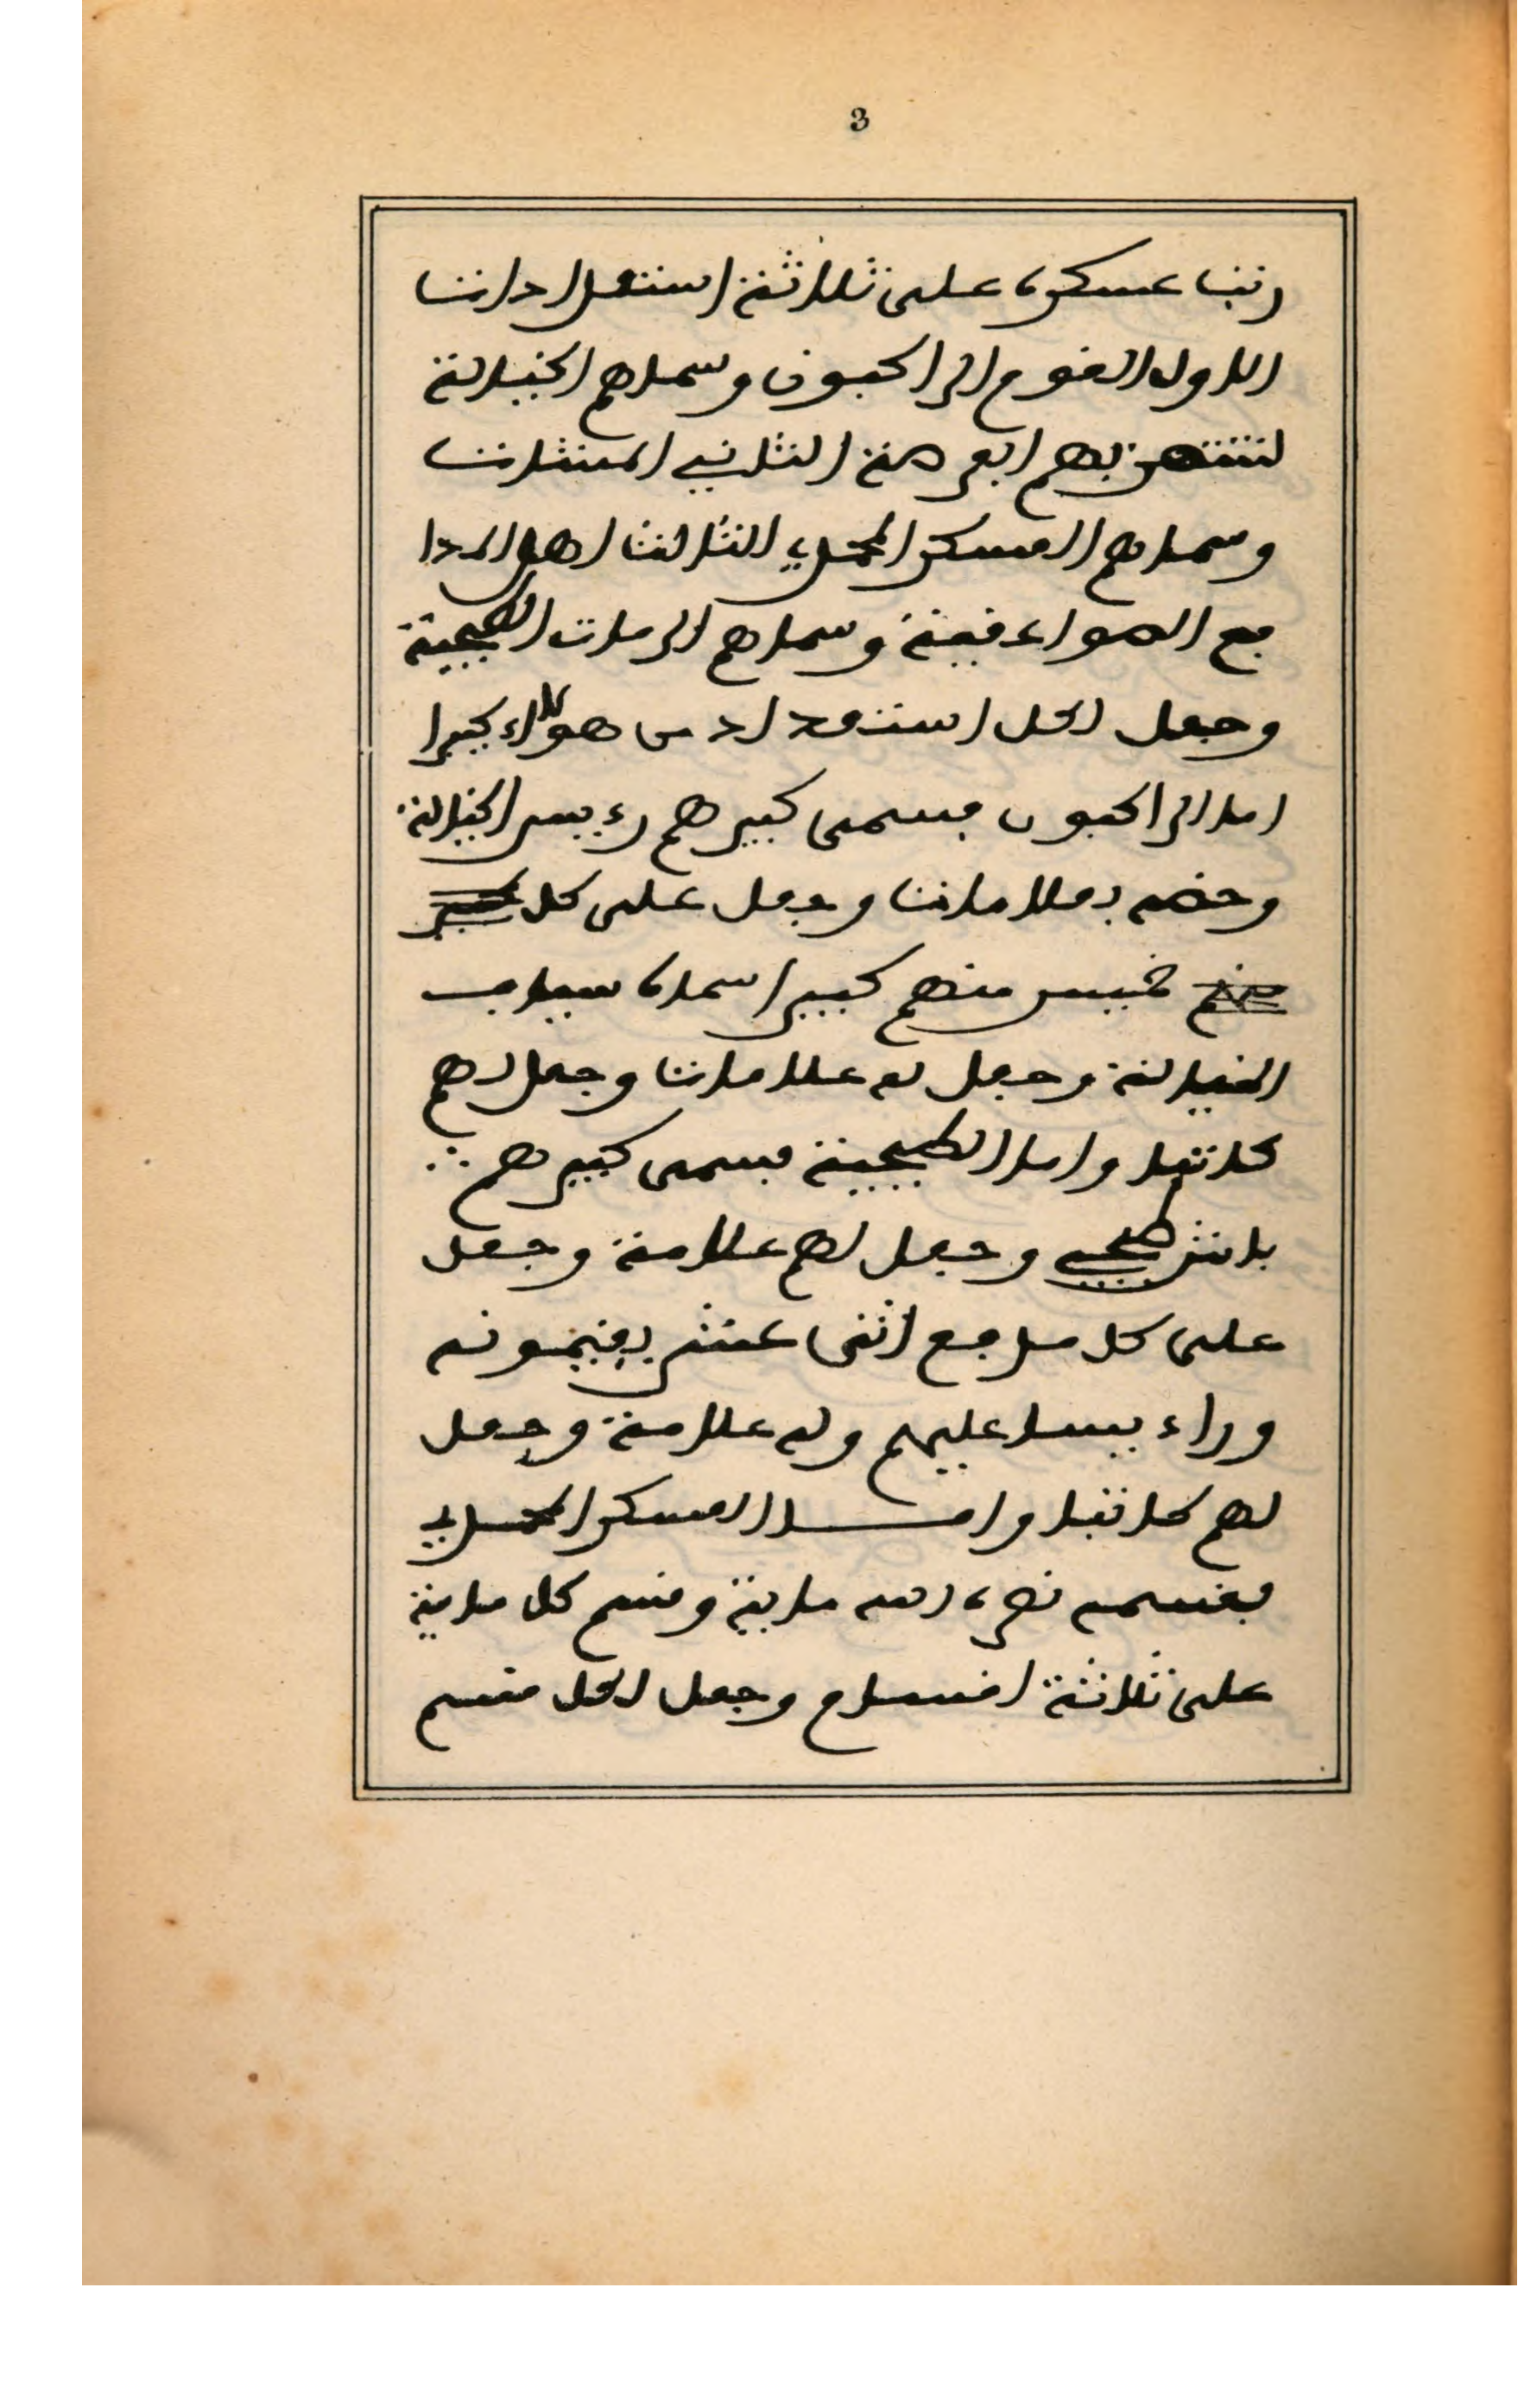 3
رتب عسكره على ثلاثة استعدادات
الاول القوم الراكبون وسماهم الخيالة
لتنتهز بهم الفرصة الثاني المشات
وسماهم العسكر المحمدي الثالث اهل المدا
فع الصواعقية وسماهم الرمات الطبجية
وجعل لكل استعداد من هولاء كبيرا
اما الراكبون فيسمى كبيرهم رءييس الخيالة
وخصه بعلامات وجعل على كل
خميس منهم كبيرا سماه سياف
الخيالة وجعل له علامات وجعل لهم
كاتبا واما الطبجية فيسمى كبيرهم
باش طبجي وجعل لهم علامة وجعل
على كل مدفع اثنى عشر يقيمونه
وراءييسا عليهم وله علامة وجعل
لهم كاتبا وامـــا العسكر المحمدي
فقسمه نصره الله ماية وقسم كل ماية
على ثلاثة اقسام وجعل لكل قسم